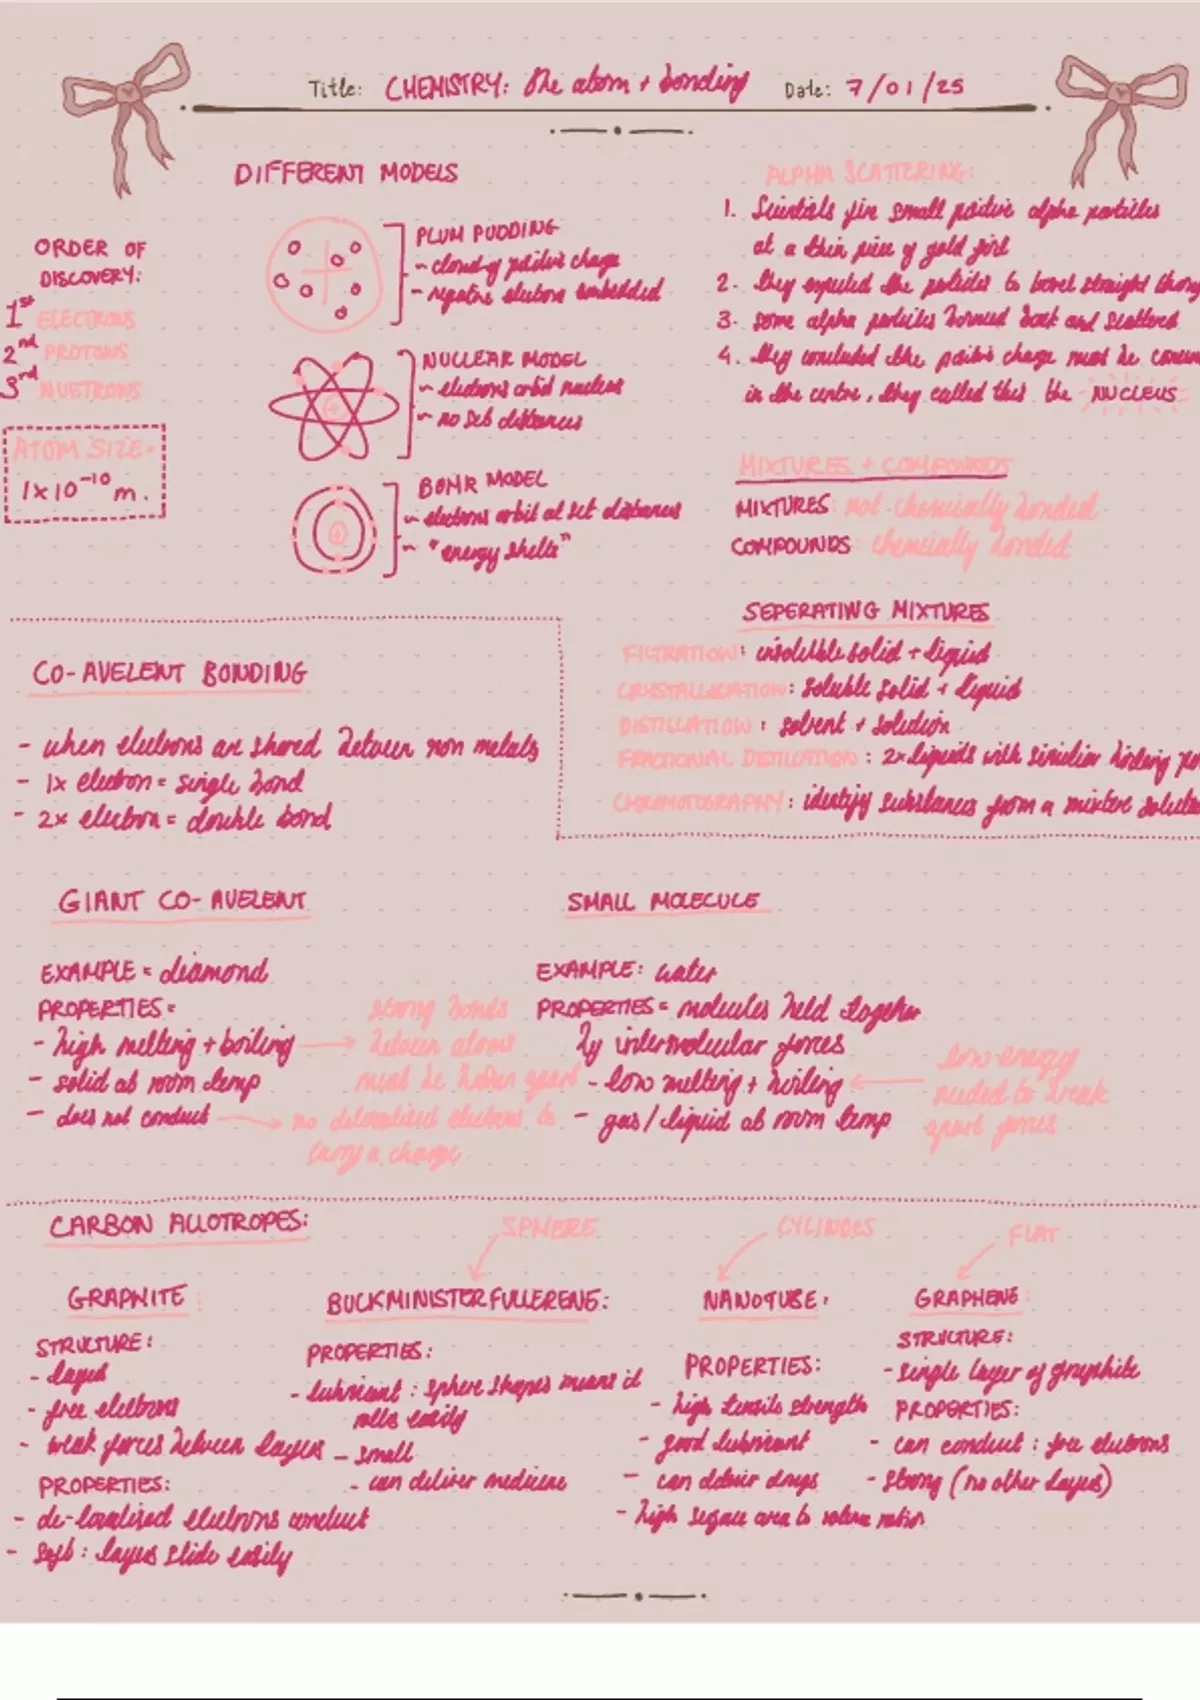 Title: CHEMISTRY: The atom + bonding Date: 7/01/25
DIFFERENT MODELS
ORDER OF
DISCOVERY:
1st ELECTRONS
2nd PROTONS
3rd NUETRONS
ATOM SIZE =
1x10-10 m.
PLUM PUDDING
~ cloud of positive charge
~ negative electrons embedded
NUCLEAR MODEL
~ electrons orbit nucleus
~ no set distances
BOHR MODEL
~ electrons orbit at set distances
~ "energy shells"
ALPHA SCATTERING:
1. Scientists fire small positive alpha particles
at a thin piece of gold
2. they expected the particles to travel straight
3. some alpha particles back and scattered
4. they concluded the positive charge must be
in the centre, they called this the NUCLEUS
MIXTURES + COMPOUNDS
MIXTURES: not chemically bonded
COMPOUNDS: bonded
SEPERATING MIXTURES
FILTRATION: insoluble solid + liquid
CRYSTALLISATION: soluble solid + liquid
DISTILLATION: solvent + solution
FRACTIONAL: 2x liquids with boiling
: identify substances from a mixture
CO-AVELENT BONDING
- when electrons are shared between non metals
- 1x electron = single bond
- 2x electron = double bond
GIANT CO-AVELENT
EXAMPLE = diamond
PROPERTIES =
- high melting + boiling
- solid at room temp
- does not conduct
strong bonds
between atoms
must be broken apart
no delocalised electrons to
carry a charge
SMALL MOLECULE
EXAMPLE: water
PROPERTIES = molecules held together
by intermolecular forces
- low melting + boiling
- gas/liquid at room temp
low energy
needed to break
apart forces
CARBON ALLOTROPES:
GRAPHITE:
STRUCTURE:
- layed
- free electrons
- weak forces between layers
PROPERTIES:
- de-localised electrons conduct
- soft: layers slide easily
SPHERE
BUCKMINISTERFULLERENE:
PROPERTIES:
- lubricant: sphere shapes means it
rolls easily
- small
- can deliver medicine
NANOTUBE:
PROPERTIES:
- high tensile strength
- good lubricant
- can deliver drugs
- high surface area to volume ration
FLAT
GRAPHENE:
STRUCTURE:
- single layer of graphite
PROPERTIES:
- can conduct: free electrons
- strong (no other layers)